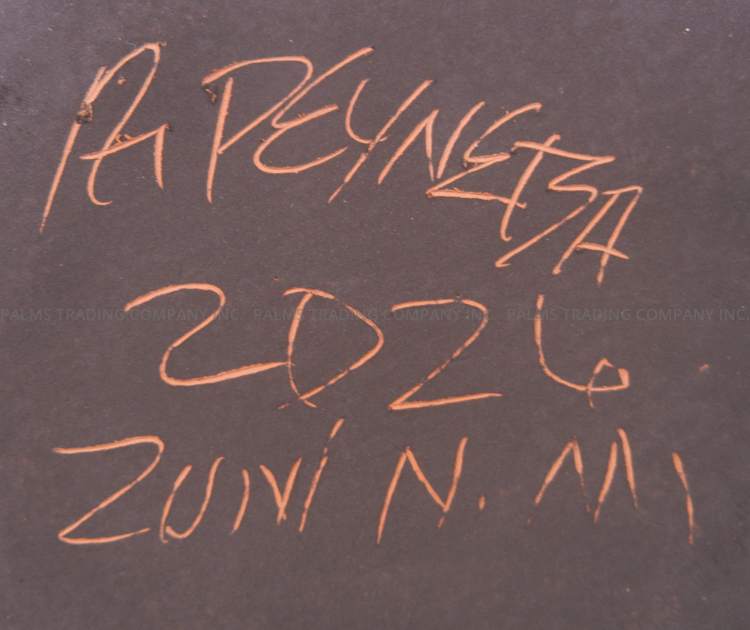 A. PEYNETSA
2026
ZUNI N. M.
PALMS TRADING COMPANY INC. PALMS TRADING COMPANY INC. PALMS TRADING COMPANY INC.